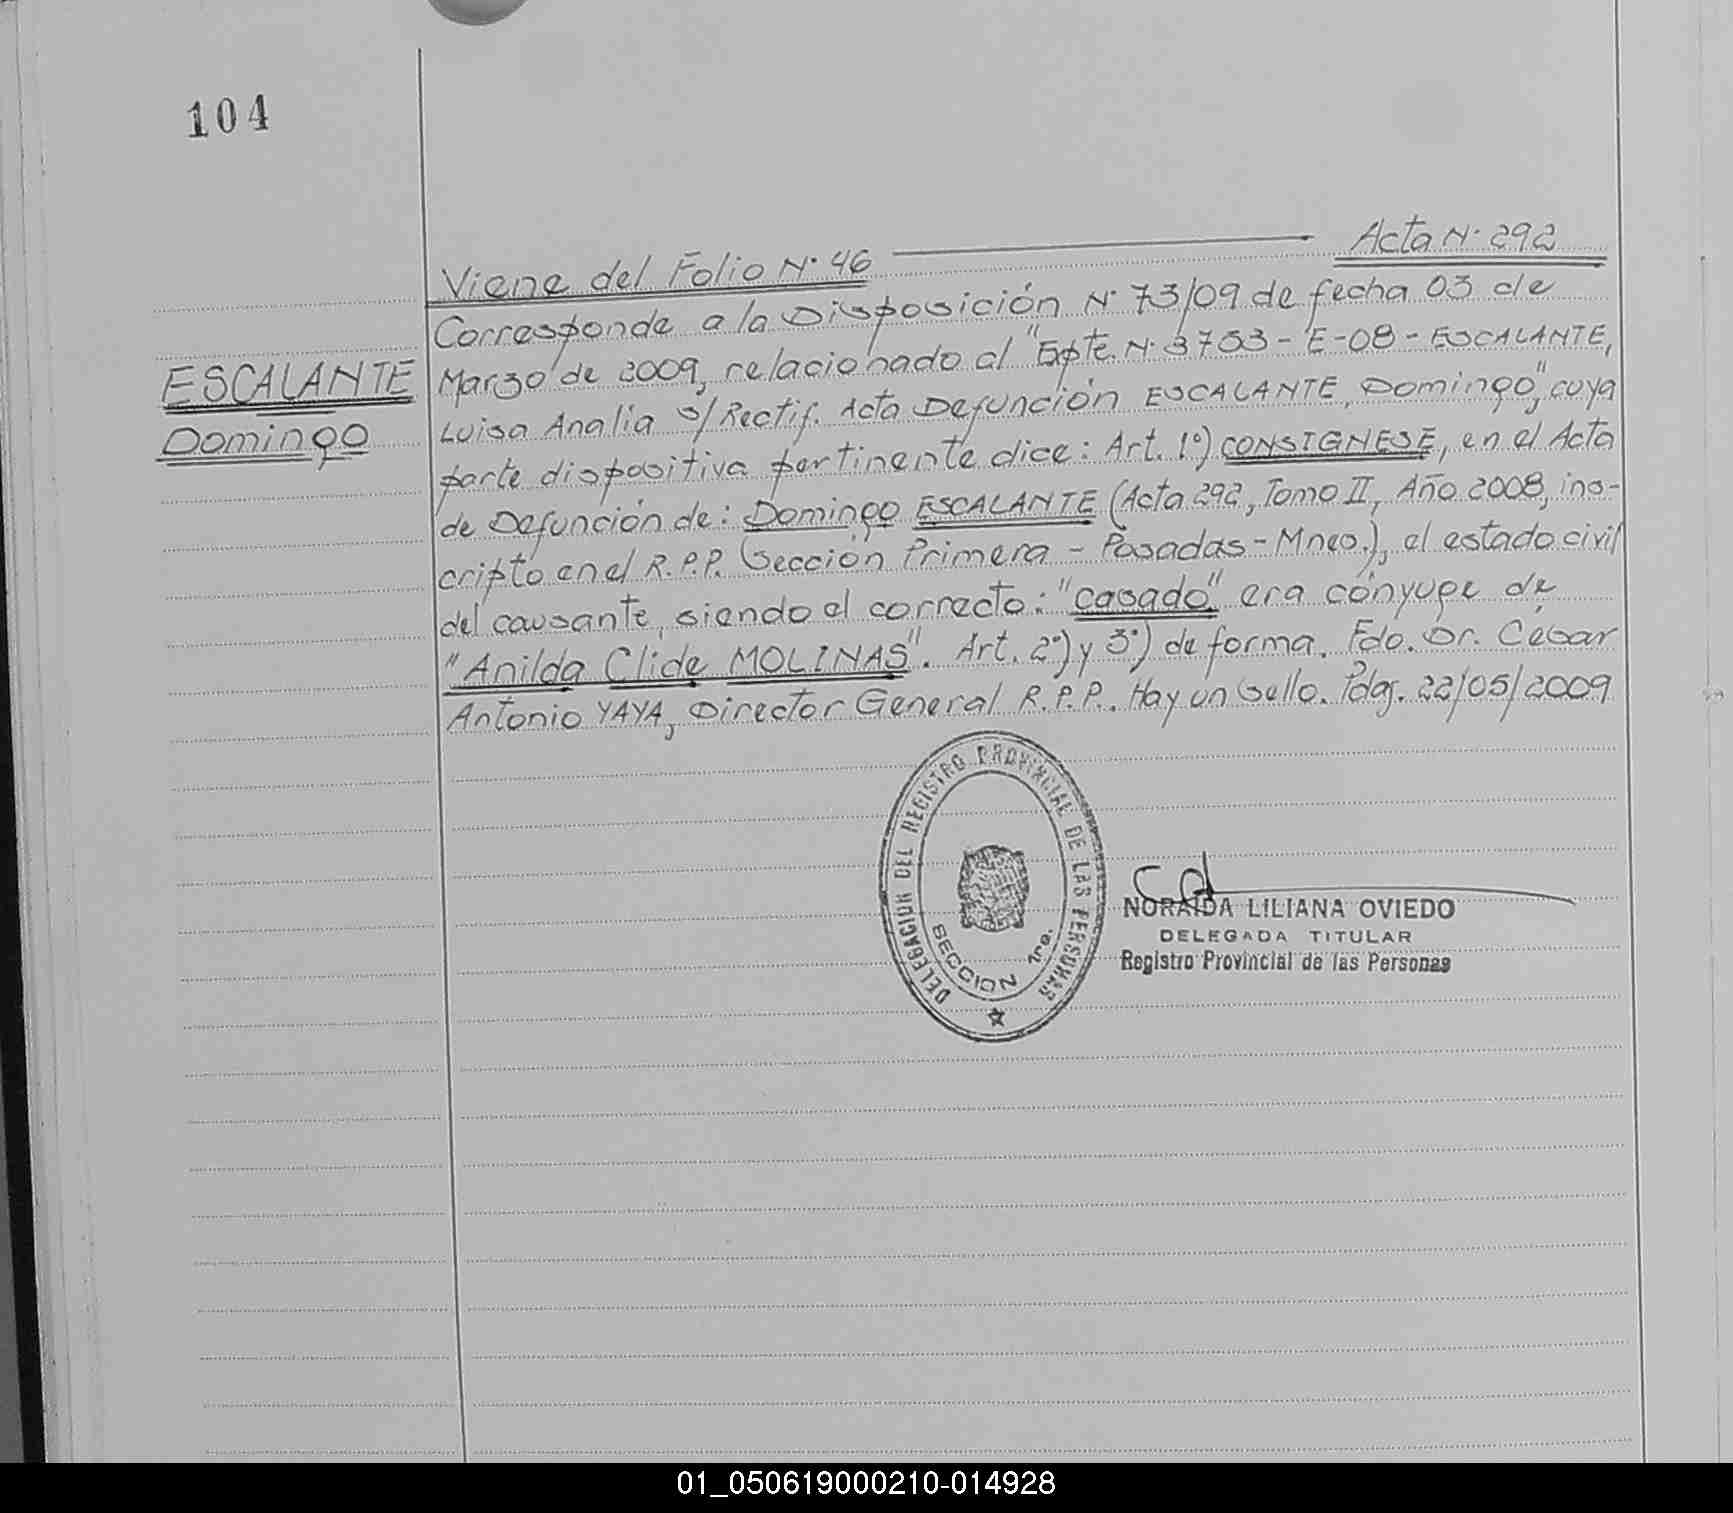 104
Viene del Folio N° 46 ——— Acta N° 292
ESCALANTE
Domingo
Corresponde a la Disposición N° 73/09 de fecha 03 de
Marzo de 2009, relacionado al "Expte. N° 3753-E-08-ESCALANTE,
Luisa Analia s/Rectif. Acta Defunción ESCALANTE, Domingo", cuya
parte dispositiva pertinente dice: Art. 1°) CONSIGNESE, en el Acta
de Defunción de: Domingo ESCALANTE (Acta 292, Tomo II, Año 2008, ins-
cripto en el R.P.P. Sección Primera - Posadas - Mnes.), el estado civil
del causante, siendo el correcto: "casado" era cónyuge de
"Anilda Clide MOLINAS". Art. 2°) y 3°) de forma. Fdo. Dr. Cesar
Antonio YAYA, Director General R.P.P.. Hay un Sello. Pdas. 22/05/2009
DELEGACION DEL REGISTRO PROVINCIAL DE LAS PERSONAS
SECCION 1ra.
NORAIDA LILIANA OVIEDO
DELEGADA TITULAR
Registro Provincial de las Personas
01_050619000210-014928